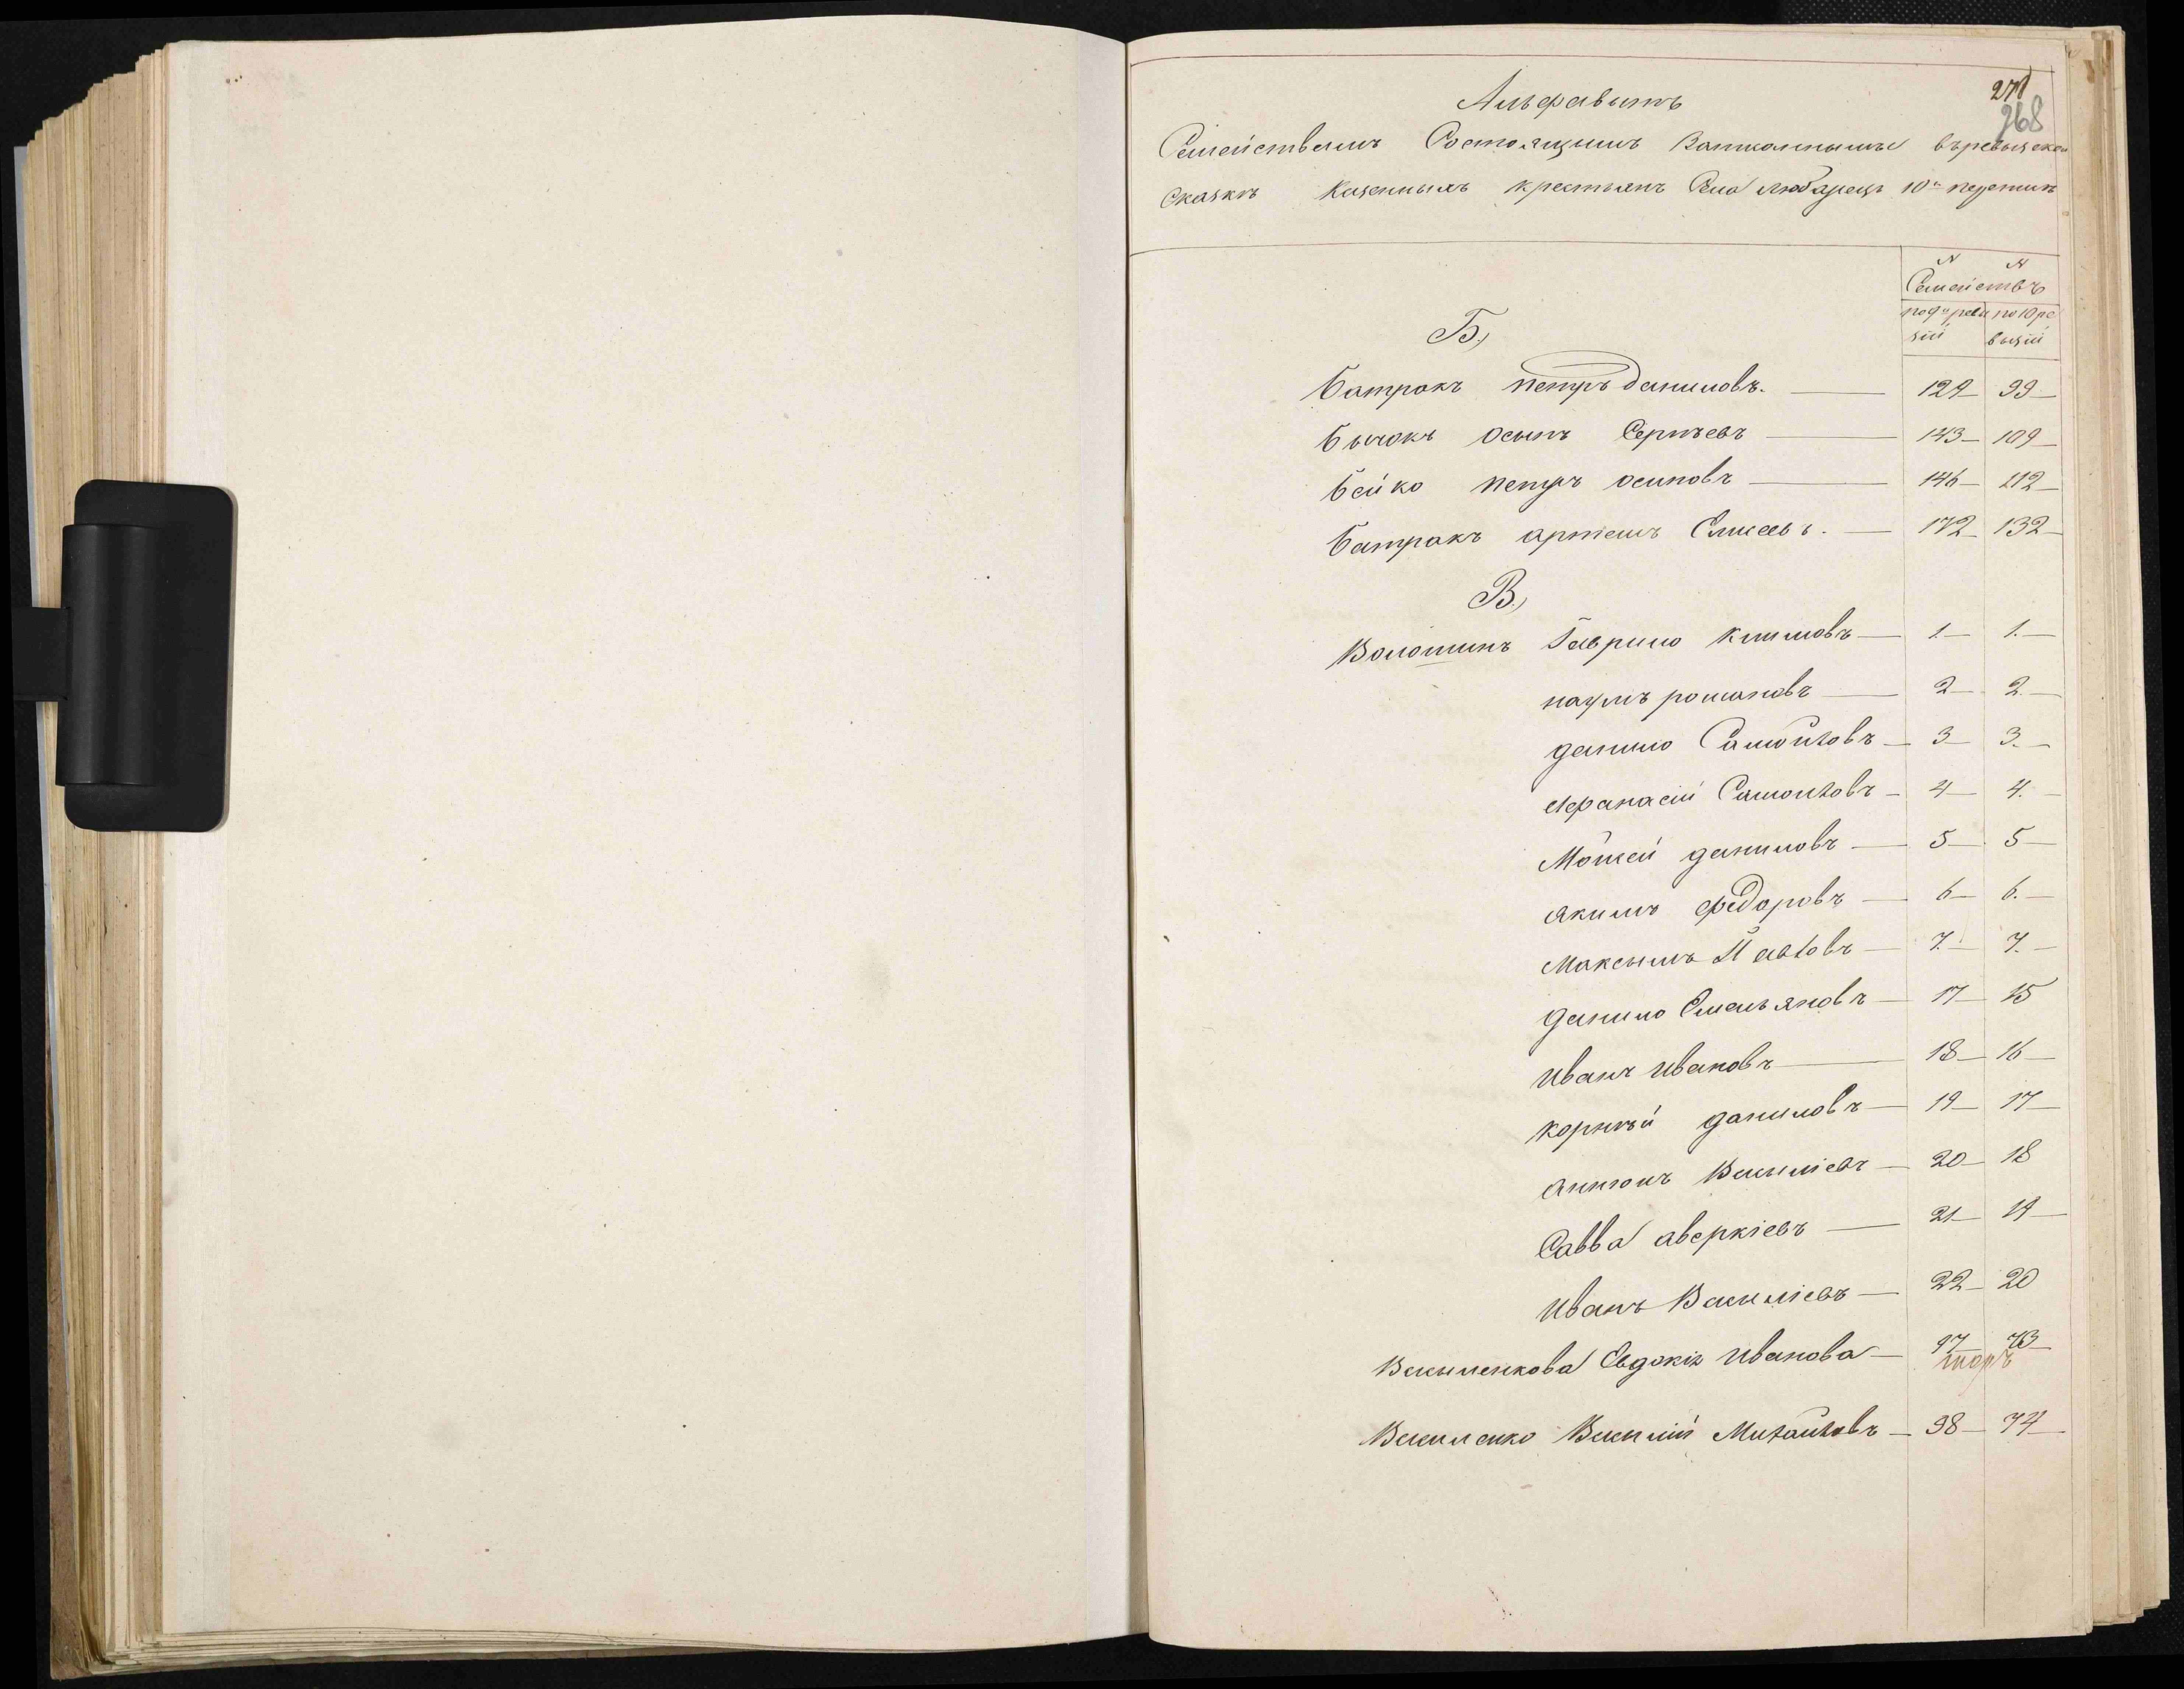 271
268
Альфавитъ
Семействамъ Состоящимъ Запысаннымъ въ ревызской
Сказкъ Казенныхъ крестьянъ Села Любарецъ 10й переписи
№ №
Семействъ
по 9й реви по 10 ре
зіи вызіи
Б.)
Батракъ петръ даниловъ. — 129 — 99 —
Бычокъ Осыпъ Сергъевъ — 143 — 109 —
Бойко петръ осиповъ — 146 — 112 —
Батракъ артемъ Елисеевъ. — 172 — 132 —
В.)
Волошинъ Гаврило Климовъ — 1. — 1. —
наумъ романовъ — 2 — 2. —
данило Самойловъ — 3 — 3. —
Афанасій Самойловъ — 4 — 4. —
Мойсей даниловъ — 5 — 5 —
якимъ федоровъ — 6 — 6. —
Максымъ Павловъ — 7. — 7. —
данило Емельяновъ — 17 — 15
Иванъ Ивановъ — 18 — 16 —
корнъй даниловъ — 19 — 17 —
антонъ Васыліевъ — 20 — 18
Савва аверкіевъ — 21 — 19 —
Иванъ Васыліевъ — 22 — 20
Васыленкова Евдокія Иванова — 97 — 73 —
Василенко Васылій Михайловъ — 98 — 74 —